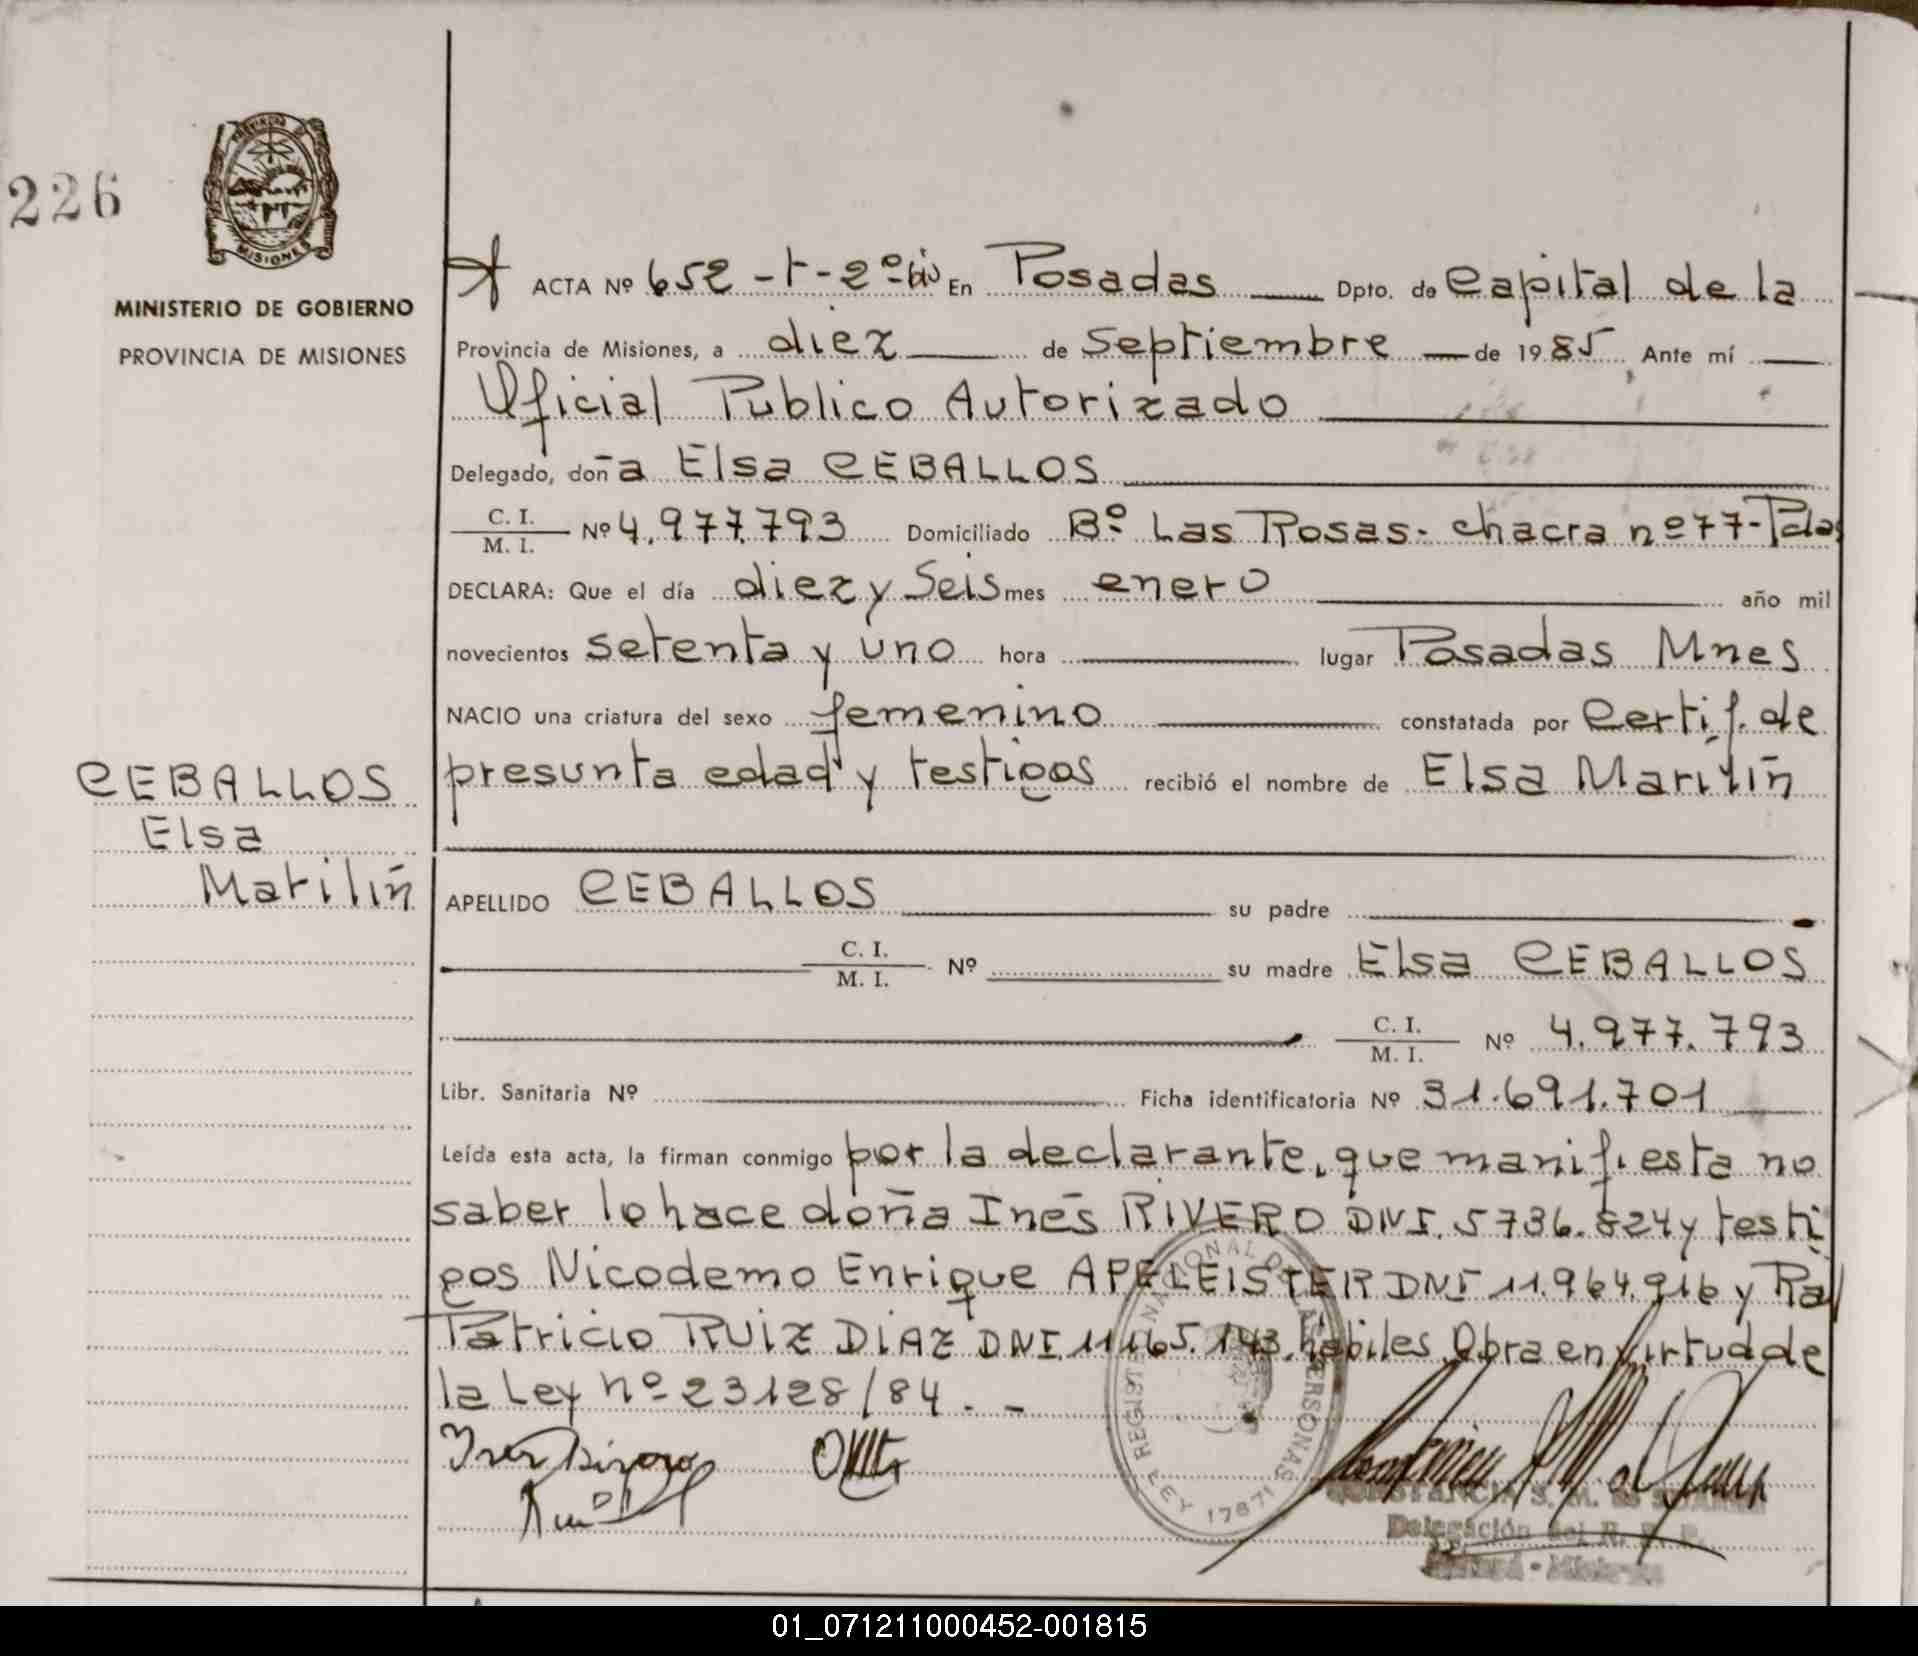 226
PROVINCIA DE
MISIONES
MINISTERIO DE GOBIERNO
PROVINCIA DE MISIONES
ACTA Nº 652 - t - 2º bis En Posadas Dpto. de Capital de la
Provincia de Misiones, a diez de Septiembre de 1985 Ante mí
Oficial Publico Autorizado
Delegado, doña Elsa CEBALLOS
C. I.
M. I. Nº 4.977.793 Domiciliado Bº Las Rosas - chacra nº 77 - Pdas
DECLARA: Que el día diez y Seis mes enero año mil
novecientos setenta y uno hora lugar Posadas Mnes
NACIO una criatura del sexo femenino constatada por Certif. de
presunta edad y testigos recibió el nombre de Elsa Marilín
CEBALLOS
Elsa
Marilín
APELLIDO CEBALLOS su padre
C. I.
M. I. Nº su madre Elsa CEBALLOS
C. I.
M. I. Nº 4.977.793
Libr. Sanitaria Nº Ficha identificatoria Nº 31.691.701
Leída esta acta, la firman conmigo por la declarante, que manifiesta no
saber lo hace doña Inés RIVERO DNI. 5736.824 y testi
gos Nicodemo Enrique APELEISTER DNI 11.964.916 y Ra
Patricio RUIZ DIAZ DNI. 11165.143. hábiles Obra en virtud de
la Ley nº 23128/84. -
REGISTRO NACIONAL DE LAS PERSONAS
LEY 17671
Delegación del R. P. P.
01_071211000452-001815